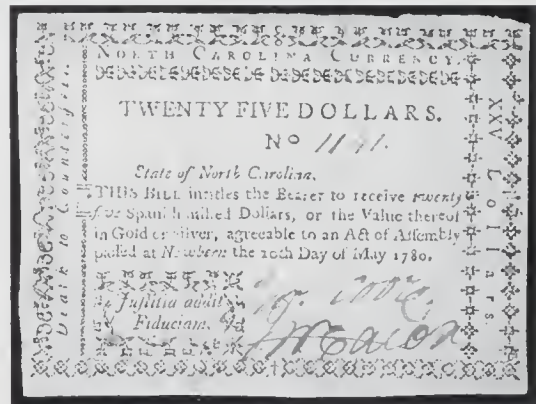 NORTH CAROLINA CURRENCY.
TWENTY FIVE DOLLARS.
No 1141.
State of North Carolina.
THIS BILL intitles the Bearer to receive twenty
five Spanish milled Dollars, or the Value thereof
in Gold or Silver, agreeable to an Act of Assembly
passed at Newbern the 10th Day of May 1780.
Justitia audit
Fiduciam.
Death to Counterfeit.
XXV Dollars